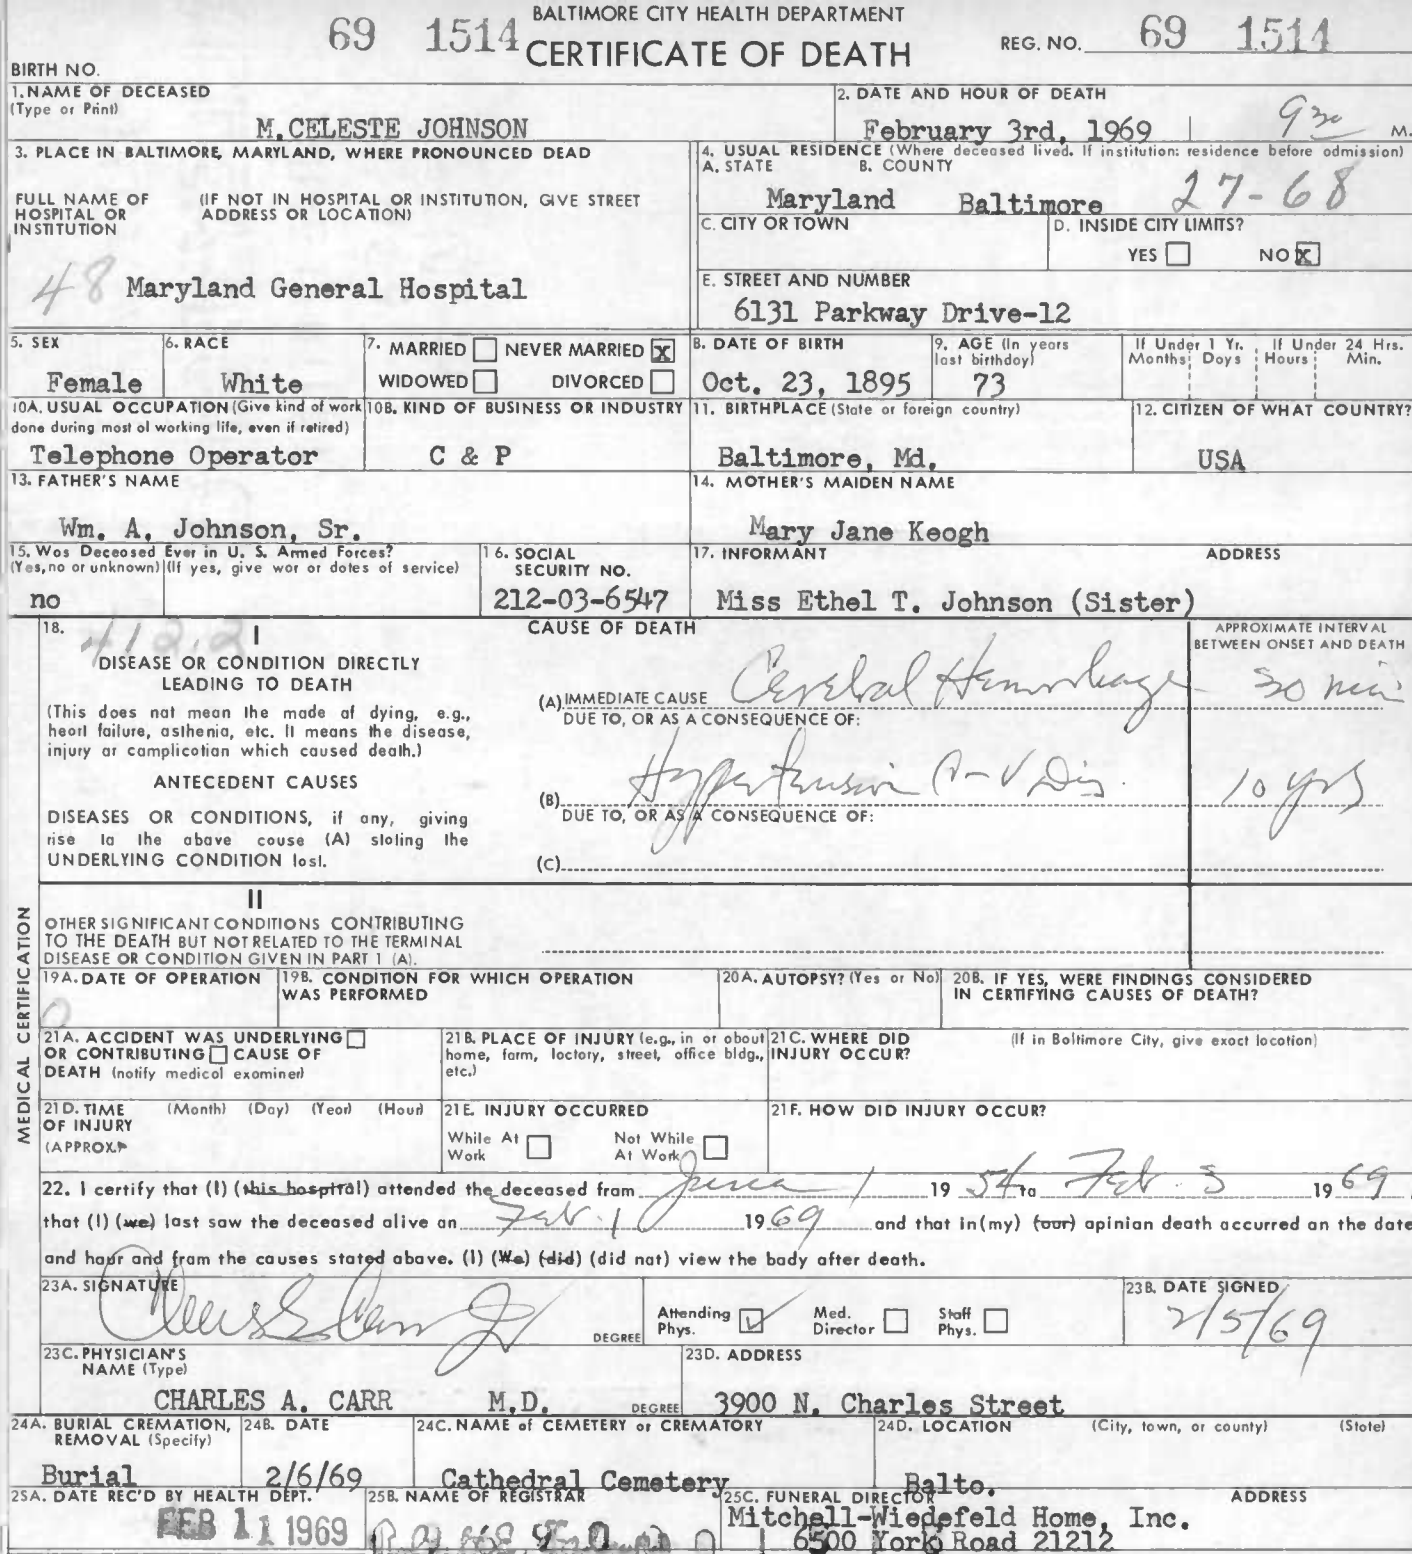 BALTIMORE CITY HEALTH DEPARTMENT
69 1514 CERTIFICATE OF DEATH REG. NO. 69 1514
BIRTH NO.
1. NAME OF DECEASED
(Type or Print)
M. CELESTE JOHNSON
2. DATE AND HOUR OF DEATH
February 3rd, 1969 9 30 M.
3. PLACE IN BALTIMORE, MARYLAND, WHERE PRONOUNCED DEAD
FULL NAME OF HOSPITAL OR INSTITUTION
(IF NOT IN HOSPITAL OR INSTITUTION, GIVE STREET ADDRESS OR LOCATION)
48 Maryland General Hospital
4. USUAL RESIDENCE (Where deceased lived. If institution: residence before admission)
A. STATE B. COUNTY
Maryland Baltimore 27-68
C. CITY OR TOWN
D. INSIDE CITY LIMITS?
YES NO X
E. STREET AND NUMBER
6131 Parkway Drive-12
5. SEX
Female
6. RACE
White
7. MARRIED NEVER MARRIED X
WIDOWED DIVORCED
8. DATE OF BIRTH
Oct. 23, 1895
9. AGE (In years last birthday)
73
If Under 1 Yr. Months Days
If Under 24 Hrs. Hours Min.
10A. USUAL OCCUPATION (Give kind of work done during most of working life, even if retired)
Telephone Operator
10B. KIND OF BUSINESS OR INDUSTRY
C & P
11. BIRTHPLACE (State or foreign country)
Baltimore, Md.
12. CITIZEN OF WHAT COUNTRY?
USA
13. FATHER'S NAME
Wm. A. Johnson, Sr.
14. MOTHER'S MAIDEN NAME
Mary Jane Keogh
15. Was Deceased Ever in U. S. Armed Forces?
(Yes, no or unknown) (If yes, give war or dates of service)
no
16. SOCIAL SECURITY NO.
212-03-6547
17. INFORMANT ADDRESS
Miss Ethel T. Johnson (Sister)
18. 412.2
I
DISEASE OR CONDITION DIRECTLY
LEADING TO DEATH
(This does not mean the mode of dying, e.g.,
heart failure, asthenia, etc. It means the disease,
injury or complication which caused death.)
ANTECEDENT CAUSES
DISEASES OR CONDITIONS, if any, giving
rise to the above cause (A) stating the
UNDERLYING CONDITION last.
CAUSE OF DEATH
APPROXIMATE INTERVAL
BETWEEN ONSET AND DEATH
(A) IMMEDIATE CAUSE Cerebral Hemorrhage 30 min
DUE TO, OR AS A CONSEQUENCE OF:
(B) Hypertension A-V Dis. 10 yrs
DUE TO, OR AS A CONSEQUENCE OF:
(C)
MEDICAL CERTIFICATION
II
OTHER SIGNIFICANT CONDITIONS CONTRIBUTING
TO THE DEATH BUT NOT RELATED TO THE TERMINAL
DISEASE OR CONDITION GIVEN IN PART 1 (A).
19A. DATE OF OPERATION
0
19B. CONDITION FOR WHICH OPERATION WAS PERFORMED
20A. AUTOPSY? (Yes or No)
20B. IF YES, WERE FINDINGS CONSIDERED IN CERTIFYING CAUSES OF DEATH?
21A. ACCIDENT WAS UNDERLYING
OR CONTRIBUTING CAUSE OF
DEATH (notify medical examiner)
21B. PLACE OF INJURY (e.g., in or about home, farm, factory, street, office bldg., etc.)
21C. WHERE DID INJURY OCCUR? (If in Baltimore City, give exact location)
21D. TIME OF INJURY (APPROX.) (Month) (Day) (Year) (Hour)
21E. INJURY OCCURRED
While At Work Not While At Work
21F. HOW DID INJURY OCCUR?
22. I certify that (I) (this hospital) attended the deceased from June 1 1954 to Feb. 3 1969,
that (I) (we) last saw the deceased alive on Feb. 1 1969 and that in (my) (our) opinion death occurred on the date
and hour and from the causes stated above. (I) (We) (did) (did not) view the body after death.
23A. SIGNATURE
DEGREE
Attending Phys. Med. Director Staff Phys.
23B. DATE SIGNED
2/5/69
23C. PHYSICIAN'S NAME (Type)
CHARLES A. CARR M.D. DEGREE
23D. ADDRESS
3900 N. Charles Street
24A. BURIAL CREMATION, REMOVAL (Specify)
Burial
24B. DATE
2/6/69
24C. NAME of CEMETERY or CREMATORY
Cathedral Cemetery
24D. LOCATION (City, town, or county) (State)
Balto.
25A. DATE REC'D BY HEALTH DEPT.
FEB 11 1969
25B. NAME OF REGISTRAR
25C. FUNERAL DIRECTOR ADDRESS
Mitchell-Wiedefeld Home, Inc.
6500 York Road 21212